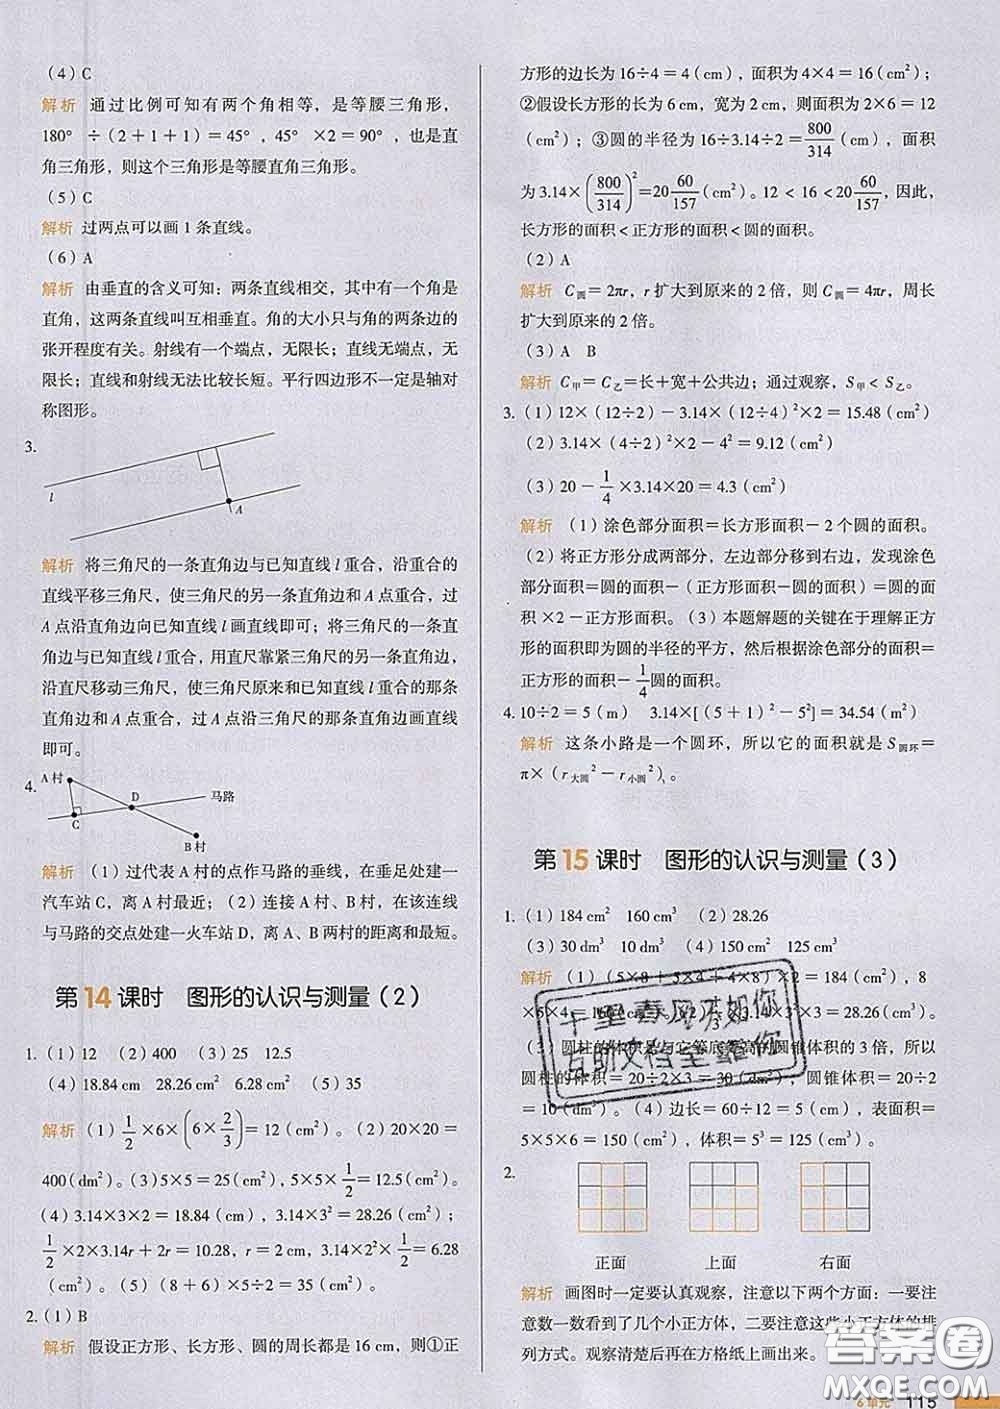 (4) C
解析 通过比例可知有两个角相等，是等腰三角形，
180° ÷(2+1+1)=45°，45° ×2=90°，也是直
角三角形，则这个三角形是等腰直角三角形。
(5) C
解析 过两点可以画 1 条直线。
(6) A
解析 由垂直的含义可知：两条直线相交，其中有一个角是
直角，这两条直线叫互相垂直。角的大小只与角的两条边的
张开程度有关。射线有一个端点，无限长；直线无端点，无
限长；直线和射线无法比较长短。平行四边形不一定是轴对
称图形。
3.
l
A
解析 将三角尺的一条直角边与已知直线 l 重合，沿重合的
直线平移三角尺，使三角尺的另一条直角边和 A 点重合，过
A 点沿直角边向已知直线 l 画直线即可；将三角尺的一条直
角边与已知直线 l 重合，用直尺靠紧三角尺的另一条直角边，
沿直尺移动三角尺，使三角尺原来和已知直线 l 重合的那条
直角边和 A 点重合，过 A 点沿三角尺的那条直角边画直线
即可。
4.
A 村
D
马路
C
B 村
解析 (1) 过代表 A 村的点作马路的垂线，在垂足处建一
汽车站 C，离 A 村最近；(2) 连接 A、B 两村，在该连线
与马路的交点处建一火车站 D，离 A、B 两村的距离和最短。
第 14 课时 图形的认识与测量（2）
1. (1) 12 (2) 400 (3) 25 12.5
(4) 18.84 cm 28.26 cm² 6.28 cm² (5) 35
解析 (1) 1/2 ×6×(6×2/3)=12 (cm²)。(2) 20×20=
400(dm²)。(3) 5×5=25 (cm²)，5×5×1/2=12.5(cm²)。
(4) 3.14×3×2=18.84 (cm)，3.14×3²=28.26 (cm²)；
1/2×2×3.14r+2r=10.28，r=2 cm，3.14×2²×1/2=6.28
(cm²)。(5) (8+6)×5÷2=35 (cm²)。
2. (1) B
解析 假设正方形、长方形、圆的周长都是 16 cm，则①正
方形的边长为 16÷4=4 (cm)，面积为 4×4=16 (cm²)；
②假设长方形的长为 6 cm，宽为 2 cm，则面积为 2×6=12
(cm²)；③圆的半径为 16÷3.14÷2=800/314 (cm)，面积
为 3.14×(800/314)²=20 60/157 (cm²)。12<16<20 60/157，因此，
长方形的面积<正方形的面积<圆的面积。
(2) A
解析 C圆=2πr，r 扩大到原来的 2 倍，则 C圆=4πr，周长
扩大到原来的 2 倍。
(3) A B
解析 C甲=C乙=长+宽+公共边；通过观察，S甲<S乙。
3. (1) 12×(12÷2)-3.14×(12÷4)²×2=15.48 (cm²)
(2) 3.14×(4÷2)²×2-4²=9.12 (cm²)
(3) 20-1/4×3.14×20=4.3 (cm²)
解析 (1) 涂色部分面积=长方形面积-2 个圆的面积。
(2) 将正方形分成两部分，左边部分移到右边，发现涂色
部分面积=圆的面积-(正方形面积-圆的面积)=圆的面
积×2-正方形面积。(3) 本题解题的关键在于理解正方
形的面积即为圆的半径的平方，然后根据涂色部分的面积=
正方形的面积-1/4圆的面积。
4. 10÷2=5 (m) 3.14×[(5+1)²-5²]=34.54 (m²)
解析 这条小路是一个圆环，所以它的面积就是 S圆环=
π×(r大圆²-r小圆²)。
第 15 课时 图形的认识与测量（3）
1. (1) 184 cm² 160 cm³ (2) 28.26
(3) 30 dm³ 10 dm³ (4) 150 cm² 125 cm³
解析 (1) (5×8+5×4+4×8)×2=184 (cm²)，8
×5×4=160 (cm³)。(2) 3.14×3×3=28.26 (cm²)。
(3) 圆柱的体积是与它等底等高的圆锥体积的 3 倍，所以
圆柱的体积=20÷2×3=30 (dm³)，圆锥体积=20÷2
=10 (dm³)。(4) 边长=60÷12=5 (cm)，表面积=
5×5×6=150 (cm²)，体积=5³=125 (cm³)。
千里春风不如你
互助文档全靠你
2.
正面 上面 右面
解析 画图时一定要认真观察，注意以下两个方面：一要注
意数一数看到了几个小正方体，二要注意这些小正方体的排
列方式。观察清楚后再在方格纸上画出来。
答案圈
MXQE.COM
6 单元 115